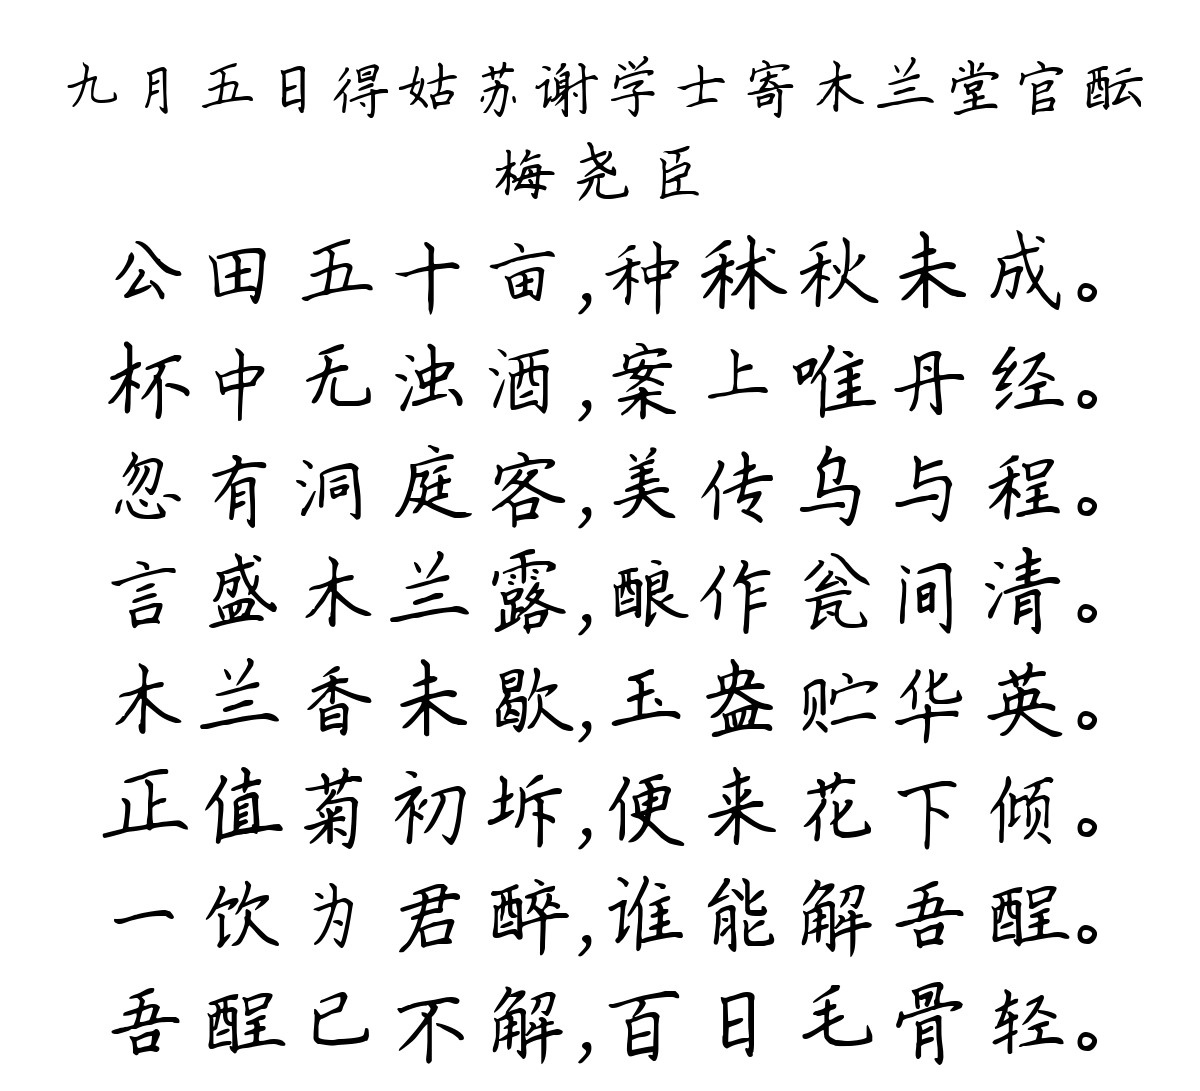 九月五日得姑苏谢学士寄木兰堂官酝
梅尧臣
公田五十亩,种秫秋未成。
杯中无浊酒,案上唯丹经。
忽有洞庭客,美传乌与程。
言盛木兰露,酿作瓮间清。
木兰香未歇,玉盎贮华英。
正值菊初坼,便来花下倾。
一饮为君醉,谁能解吾酲。
吾酲已不解,百日毛骨轻。